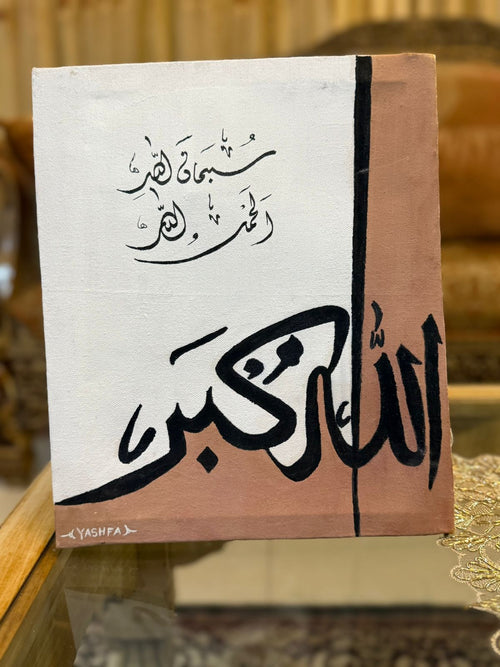 سُبحان الله
الحمد لله
الله اكبر
YASHFA